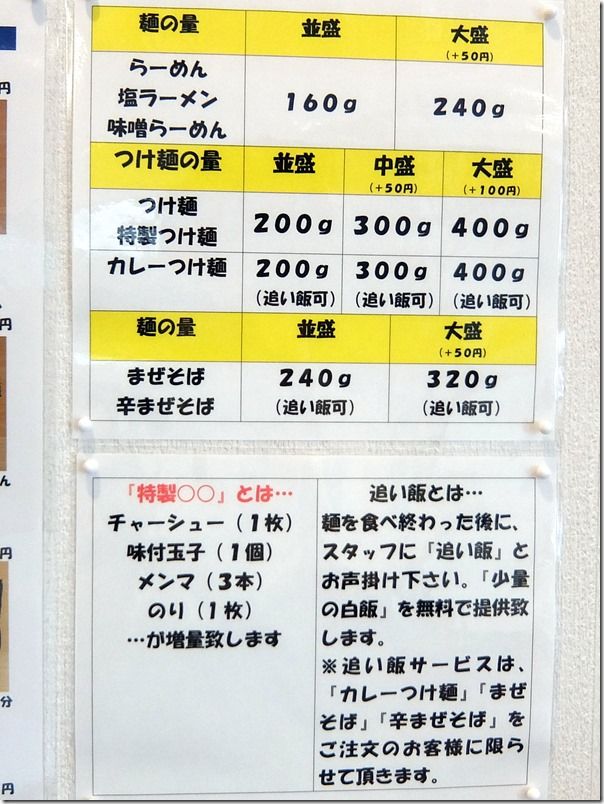 麺の量 並盛 大盛
(+50円)
らーめん
塩ラーメン
味噌らーめん
160g 240g
つけ麺の量 並盛 中盛 大盛
(+50円) (+100円)
つけ麺
特製つけ麺
200g 300g 400g
カレーつけ麺 200g 300g 400g
(追い飯可) (追い飯可) (追い飯可)
麺の量 並盛 大盛
(+50円)
まぜそば 240g 320g
辛まぜそば (追い飯可) (追い飯可)
「特製○○」とは…
チャーシュー(1枚)
味付玉子(1個)
メンマ(3本)
のり(1枚)
…が増量致します
追い飯とは…
麺を食べ終わった後に、
スタッフに「追い飯」と
お声掛け下さい。「少量
の白飯」を無料で提供致
します。
※追い飯サービスは、
「カレーつけ麺」「まぜ
そば」「辛まぜそば」を
ご注文のお客様に限ら
せて頂きます。
円
円
ん
円
分
円